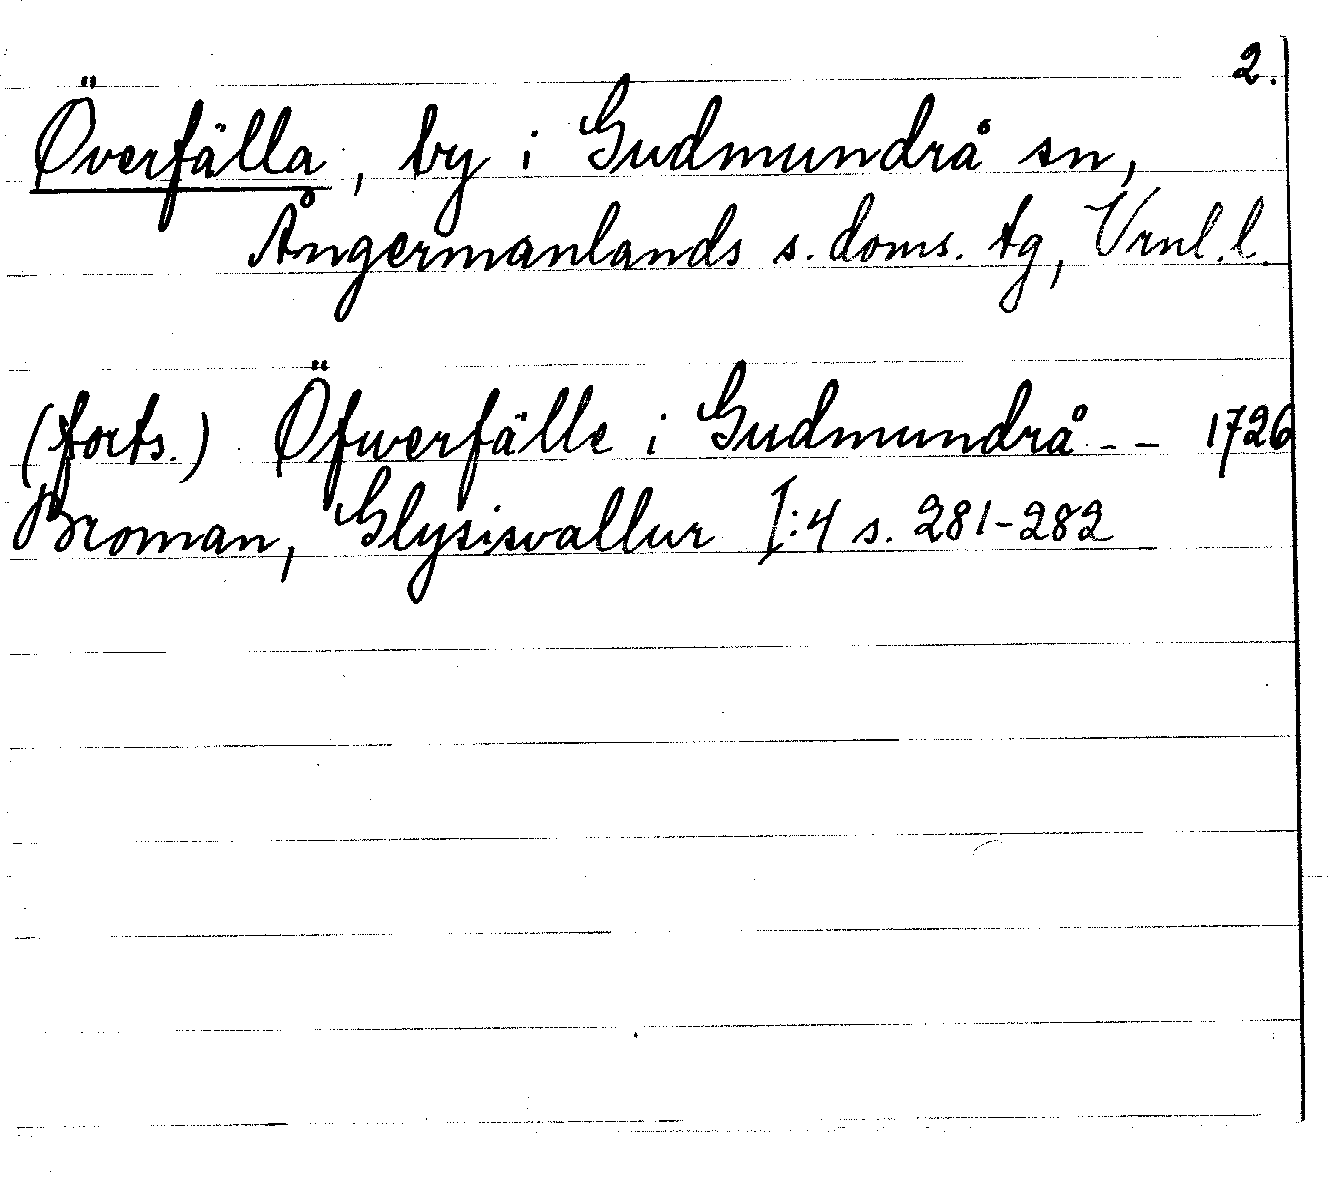 2.
Överfälla, by i Gudmundrå sn,
Ångermanlands s. doms. tg, Vrnl. l.
(forts.) Öfwerfälle i Gudmundrå - - 1726
Broman, Glysisvallur I:4 s. 281-282